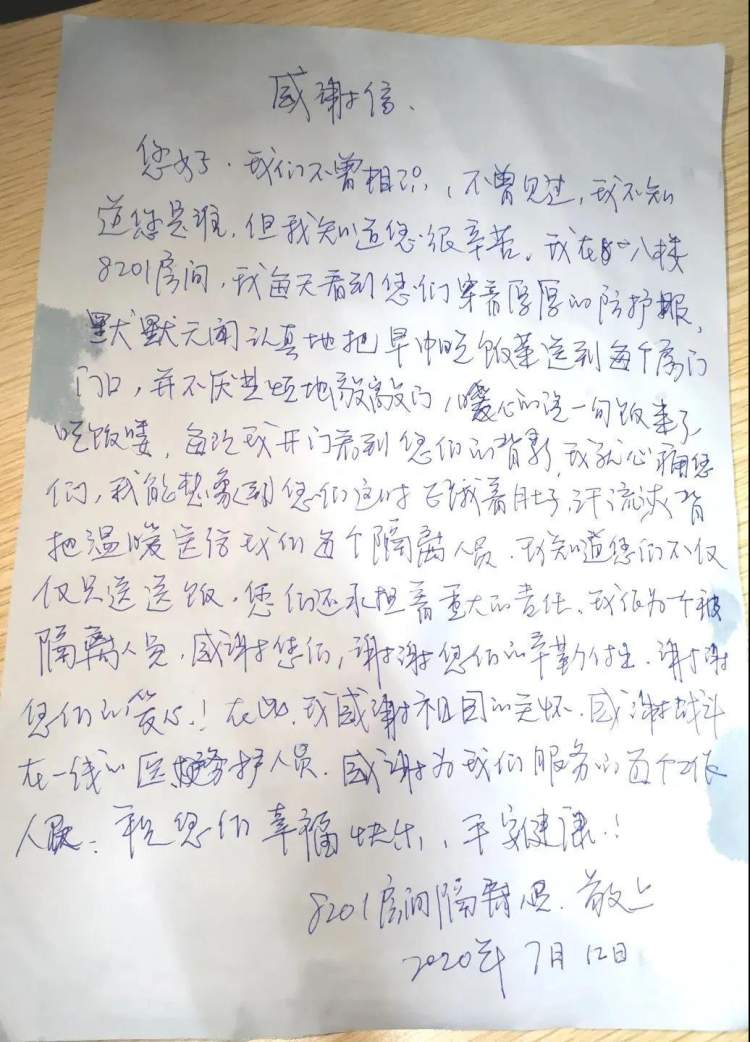 感谢信、
您好、我们不曾相识,不曾见过,我不知
道您是谁,但我知道您很辛苦、我在八楼
8201房间,我每天看到您们穿着厚厚的防护服,
默默无闻认真地把早中晚饭菜送到每个房门
门口,并不厌其烦地敲敲门,暖心的说一句饭来了
吃饭喽,每次我开门看到您们的背影,我就心痛您
们,我能想象到您们这时正饿着肚子,汗流浃背
把温暖送给我们每个隔离人员、我知道您们不仅
仅只送送饭、您们还承担着重大的责任、我作为一个被
隔离人员,感谢您们,谢谢您们的辛勤付出、谢谢
您们的爱心!在此、我感谢祖国的关怀、感谢战斗
在一线的医务护人员、感谢为我们服务的每个工作
人员:祝您们幸福快乐,平安健康!
8201房间隔离员、敬上
2020年7月12日